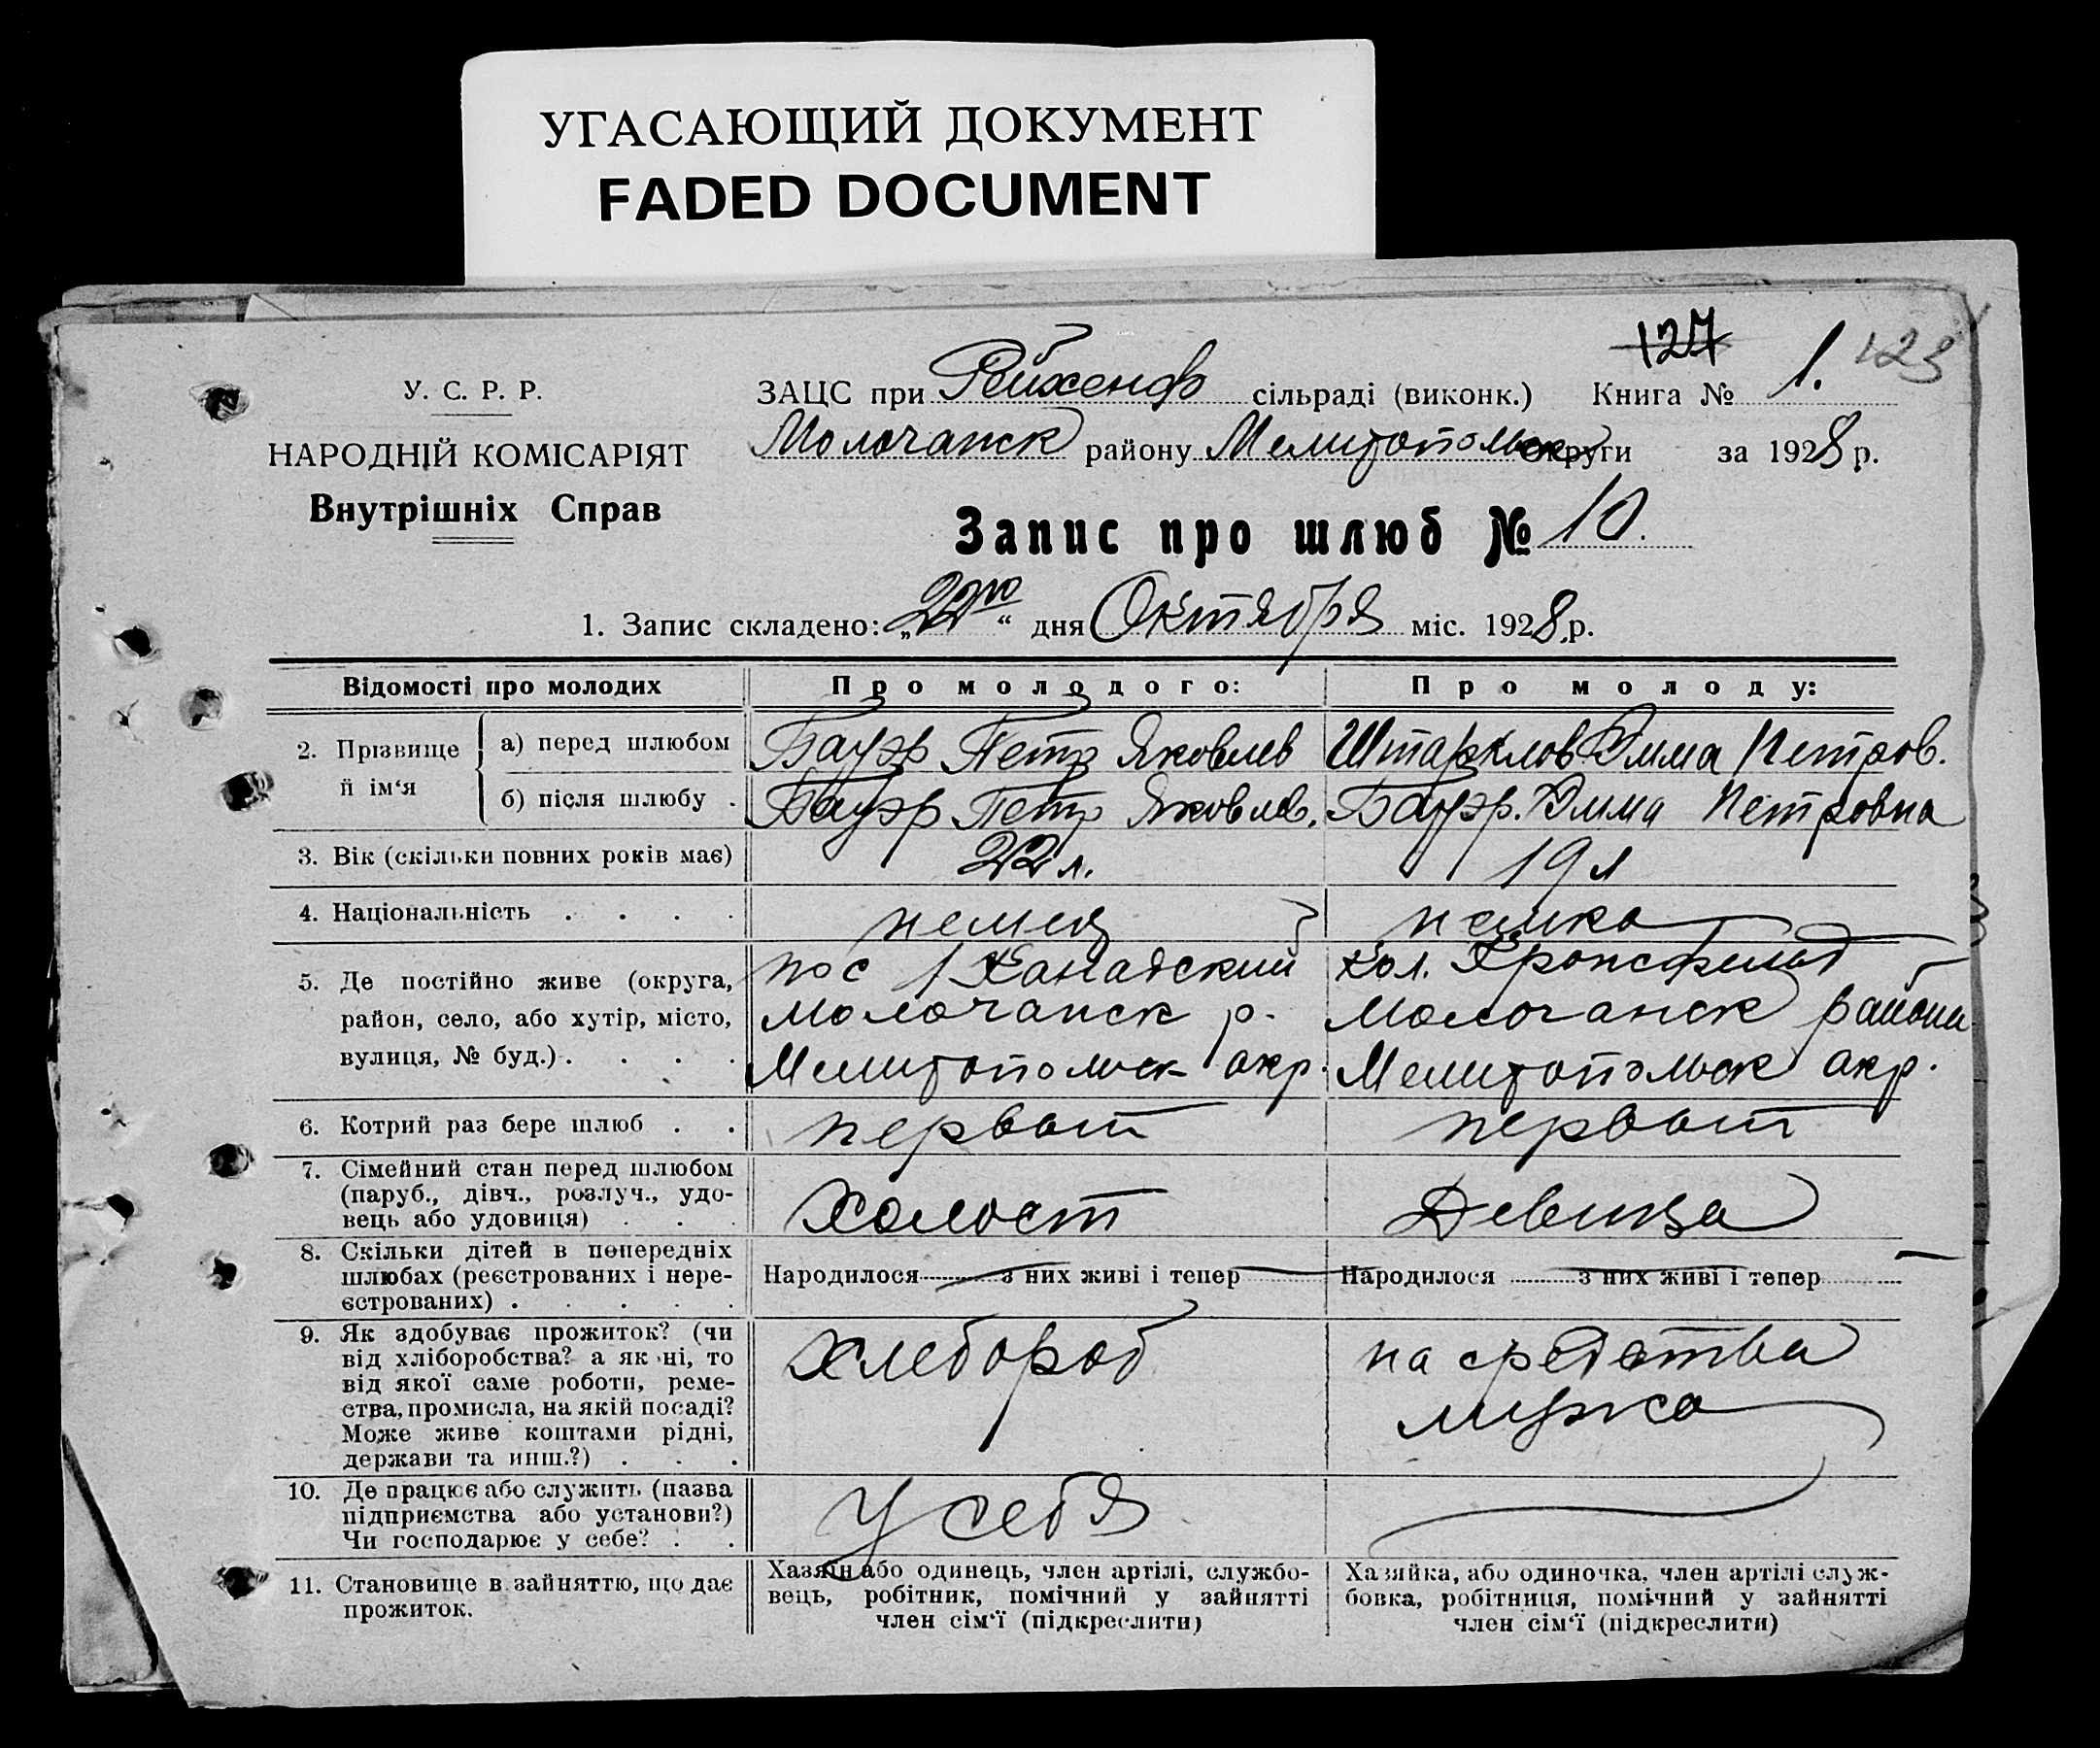 УГАСАЮЩИЙ ДОКУМЕНТ
FADED DOCUMENT
127
123
У. С. Р. Р.
НАРОДНІЙ КОМІСАРІЯТ
Внутрішніх Справ
ЗАЦС при Рейхенф сільраді (виконк.) Книга № 1.
Молочанск району Мелитопольск округи за 1928 р.
Запис про шлюб № 10.
1. Запис складено: „22го“ дня Октября міс. 1928 р.
Відомості про молодих
Про молодого:
Про молоду:
2. Прізвище й ім‘я
а) перед шлюбом
Бауэр Петр Яковлев
Штарклов Эмма Петров.
б) після шлюбу .
Бауэр Петр Яковлев.
Бауэр. Эмма Петровна
3. Вік (скільки повних років має)
22 л.
19 л
4. Національність . . . .
немец
немка
5. Де постійно живе (округа,
район, село, або хутір, місто,
вулиця, № буд.) . . . .
пос 1 Канадский
Молочанск р.
Мелитопольск окр.
кол. Кронсфельд
Молочанск района
Мелитопольск окр.
6. Котрий раз бере шлюб . .
первый
первый
7. Сімейний стан перед шлюбом
(паруб., дівч., розлуч., удо-
вець або удовиця) . . .
холост
Девица
8. Скільки дітей в попередніх
шлюбах (реєстрованих і нере-
єстрованих) . . . . .
Народилося з них живі і тепер
Народилося з них живі і тепер
9. Як здобуває прожиток? (чи
від хліборобства? а як ні, то
від якої саме роботи, реме-
ства, промисла, на якій посаді?
Може живе коштами рідні,
держави та инш.?) . . .
хлебороб
на средства
мужа
10. Де працює або служить (назва
підприємства або установи?)
Чи господарює у себе? . .
у себя
11. Становище в зайняттю, що дає
прожиток.
Хазяїн або одинець, член артілі, службо-
вець, робітник, помічний у зайнятті
член сім‘ї (підкреслити)
Хазяйка, або одиночка, член артілі служ-
бовка, робітниця, помічний у зайнятті
член сім‘ї (підкреслити)